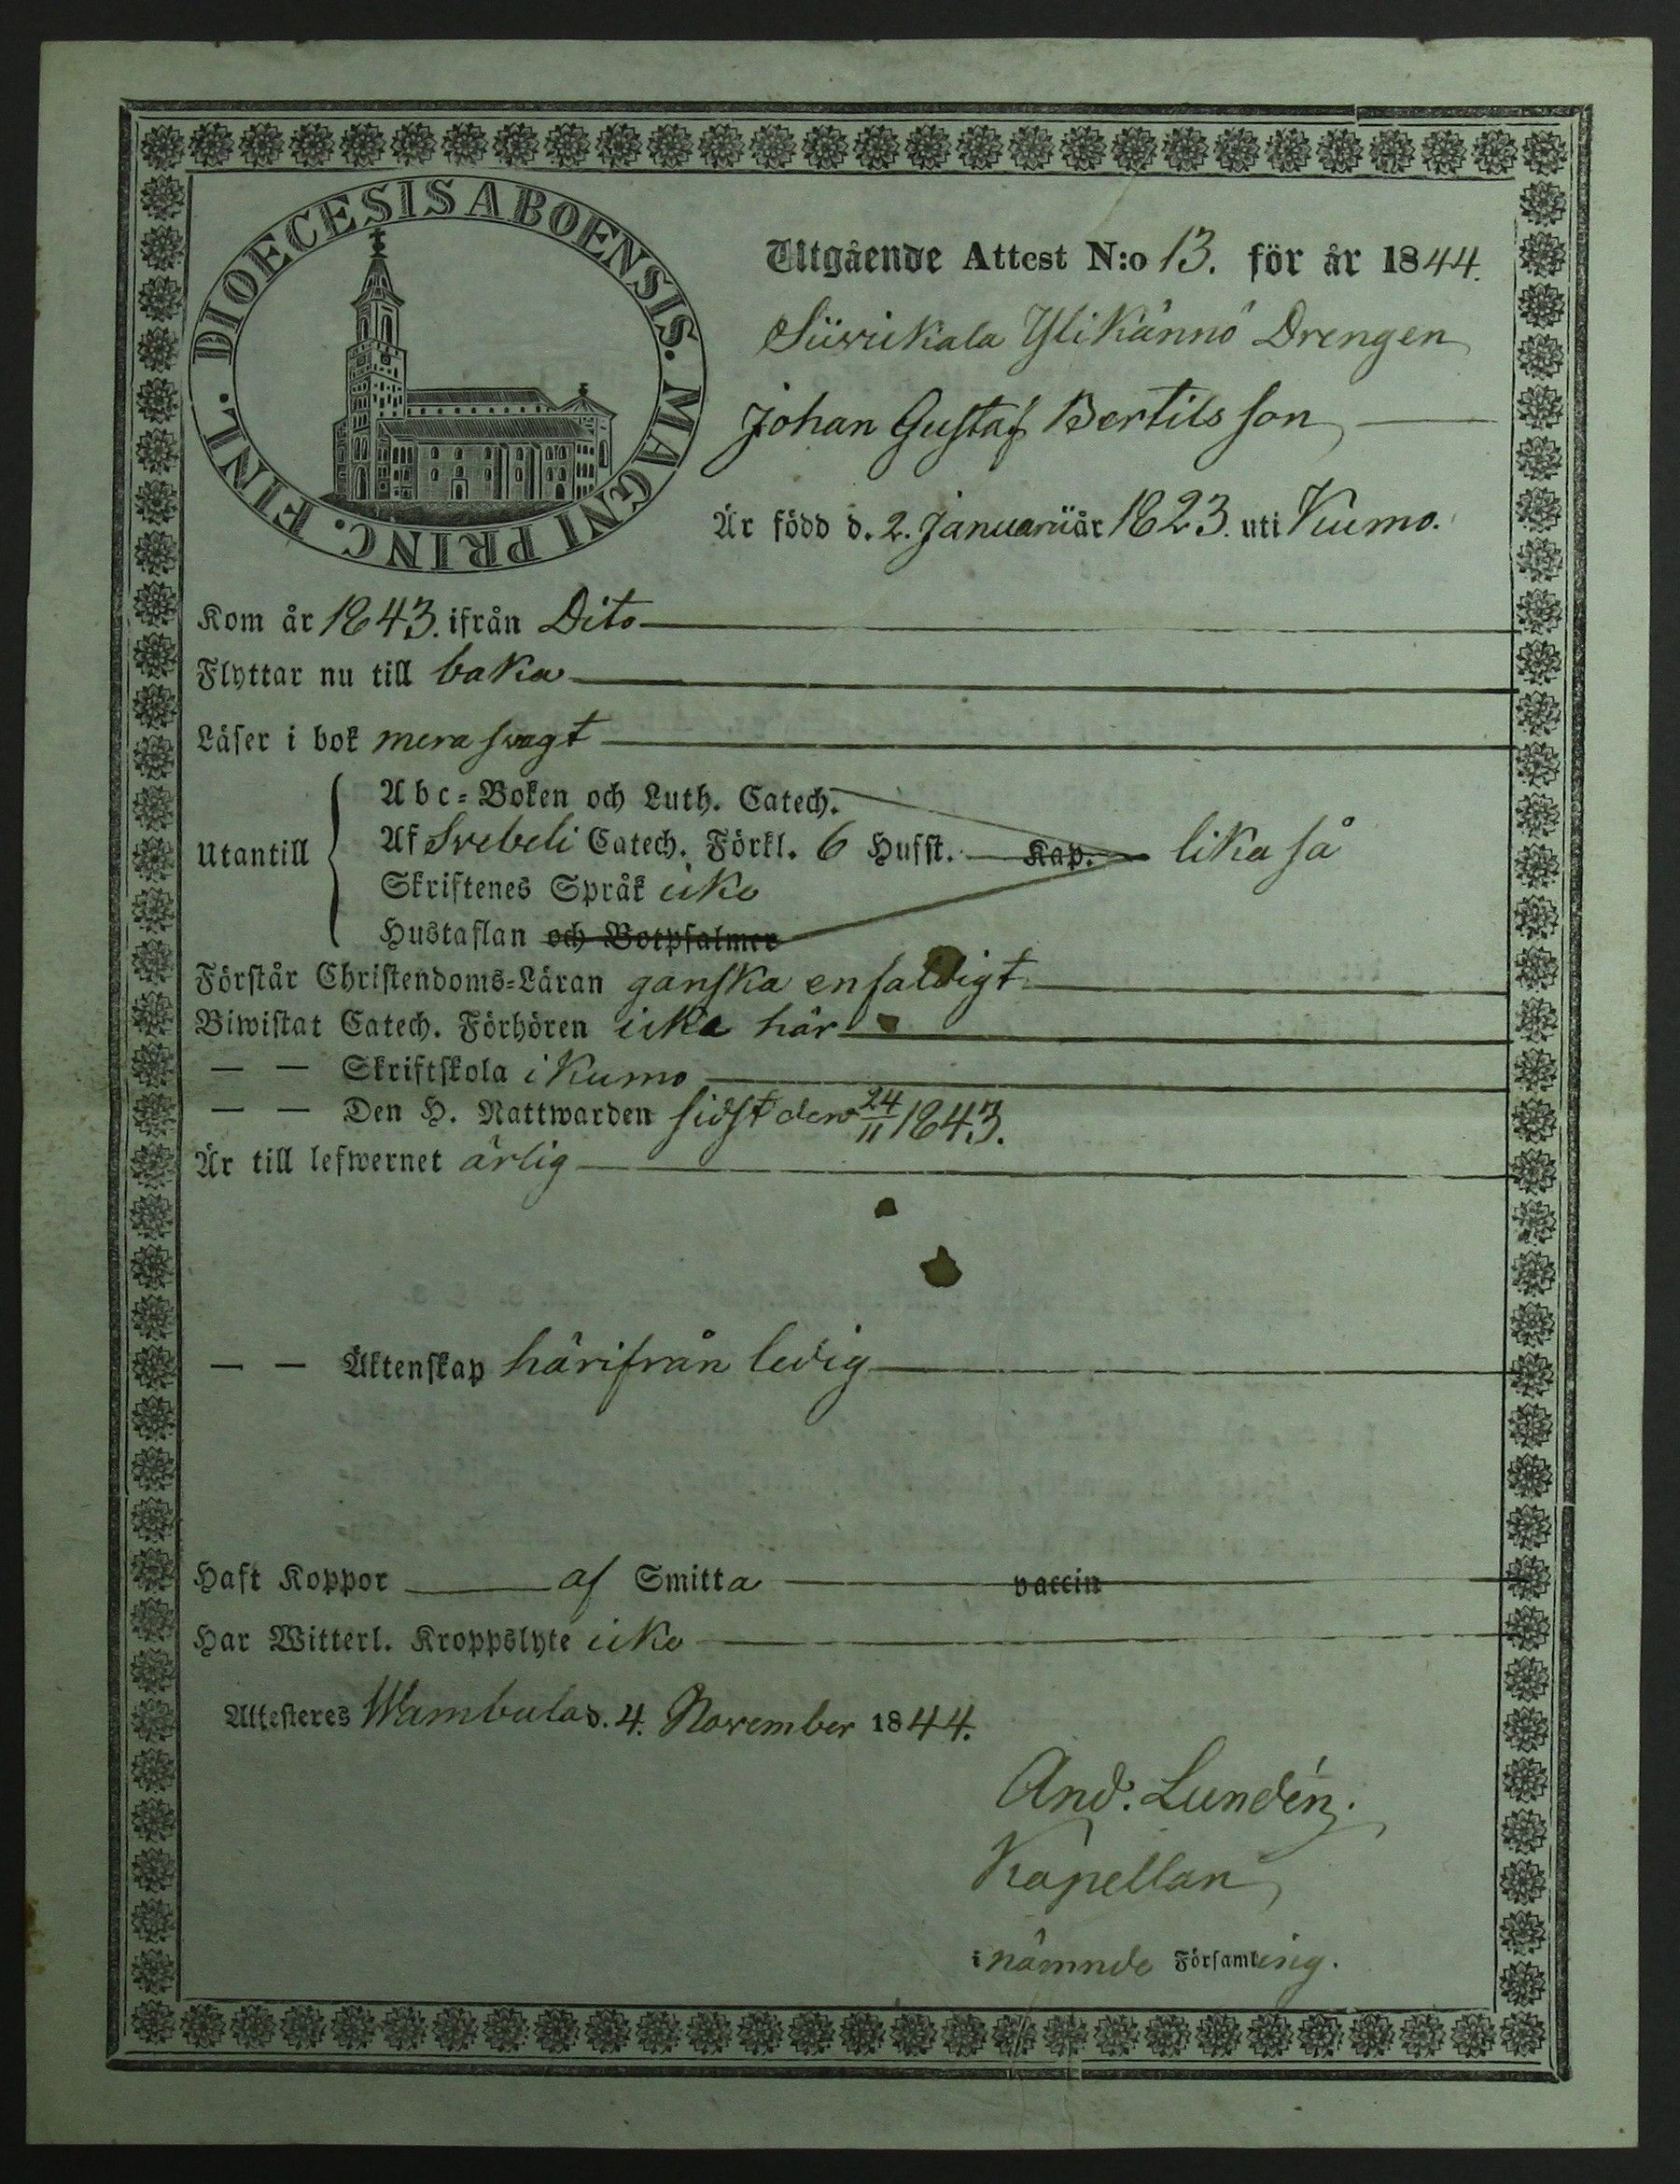 DIOECESIS ABOENSIS. MAGNI PRINC. FINL.
Utgående Attest N:o 13. för år 1844.
Siiwikala Ylikännö Drengen
Johan Gustaf Bertilsson
Är född d. 2. Januarii år 1823. uti Kumo.
Kom år 1843. ifrån Dito
Flyttar nu till baka
Läser i bok mera swagt
Abc-Boken och Luth. Catech.
Utantill Af Svebeli Catech. Förkl. 6 Hufst. Kap. lika så
Skriftenes Språk icke
Hustaflan och Botpsalmer
Förstår Christendoms-Läran ganska enfaldigt
Biwistat Catech. Förhören icke här
— — Skriftskola i Kumo
— — Den H. Nattwarden sidst den 24/11 1843.
Är till lefwernet ärlig
— — Äktenskap härifrån ledig
Haft Koppor af Smitta vaccin
Har Witterl. Kroppslyte icke
Attesteres Wambula d. 4. November 1844.
And. Lundén.
Kapellan
i nämnde Församling.